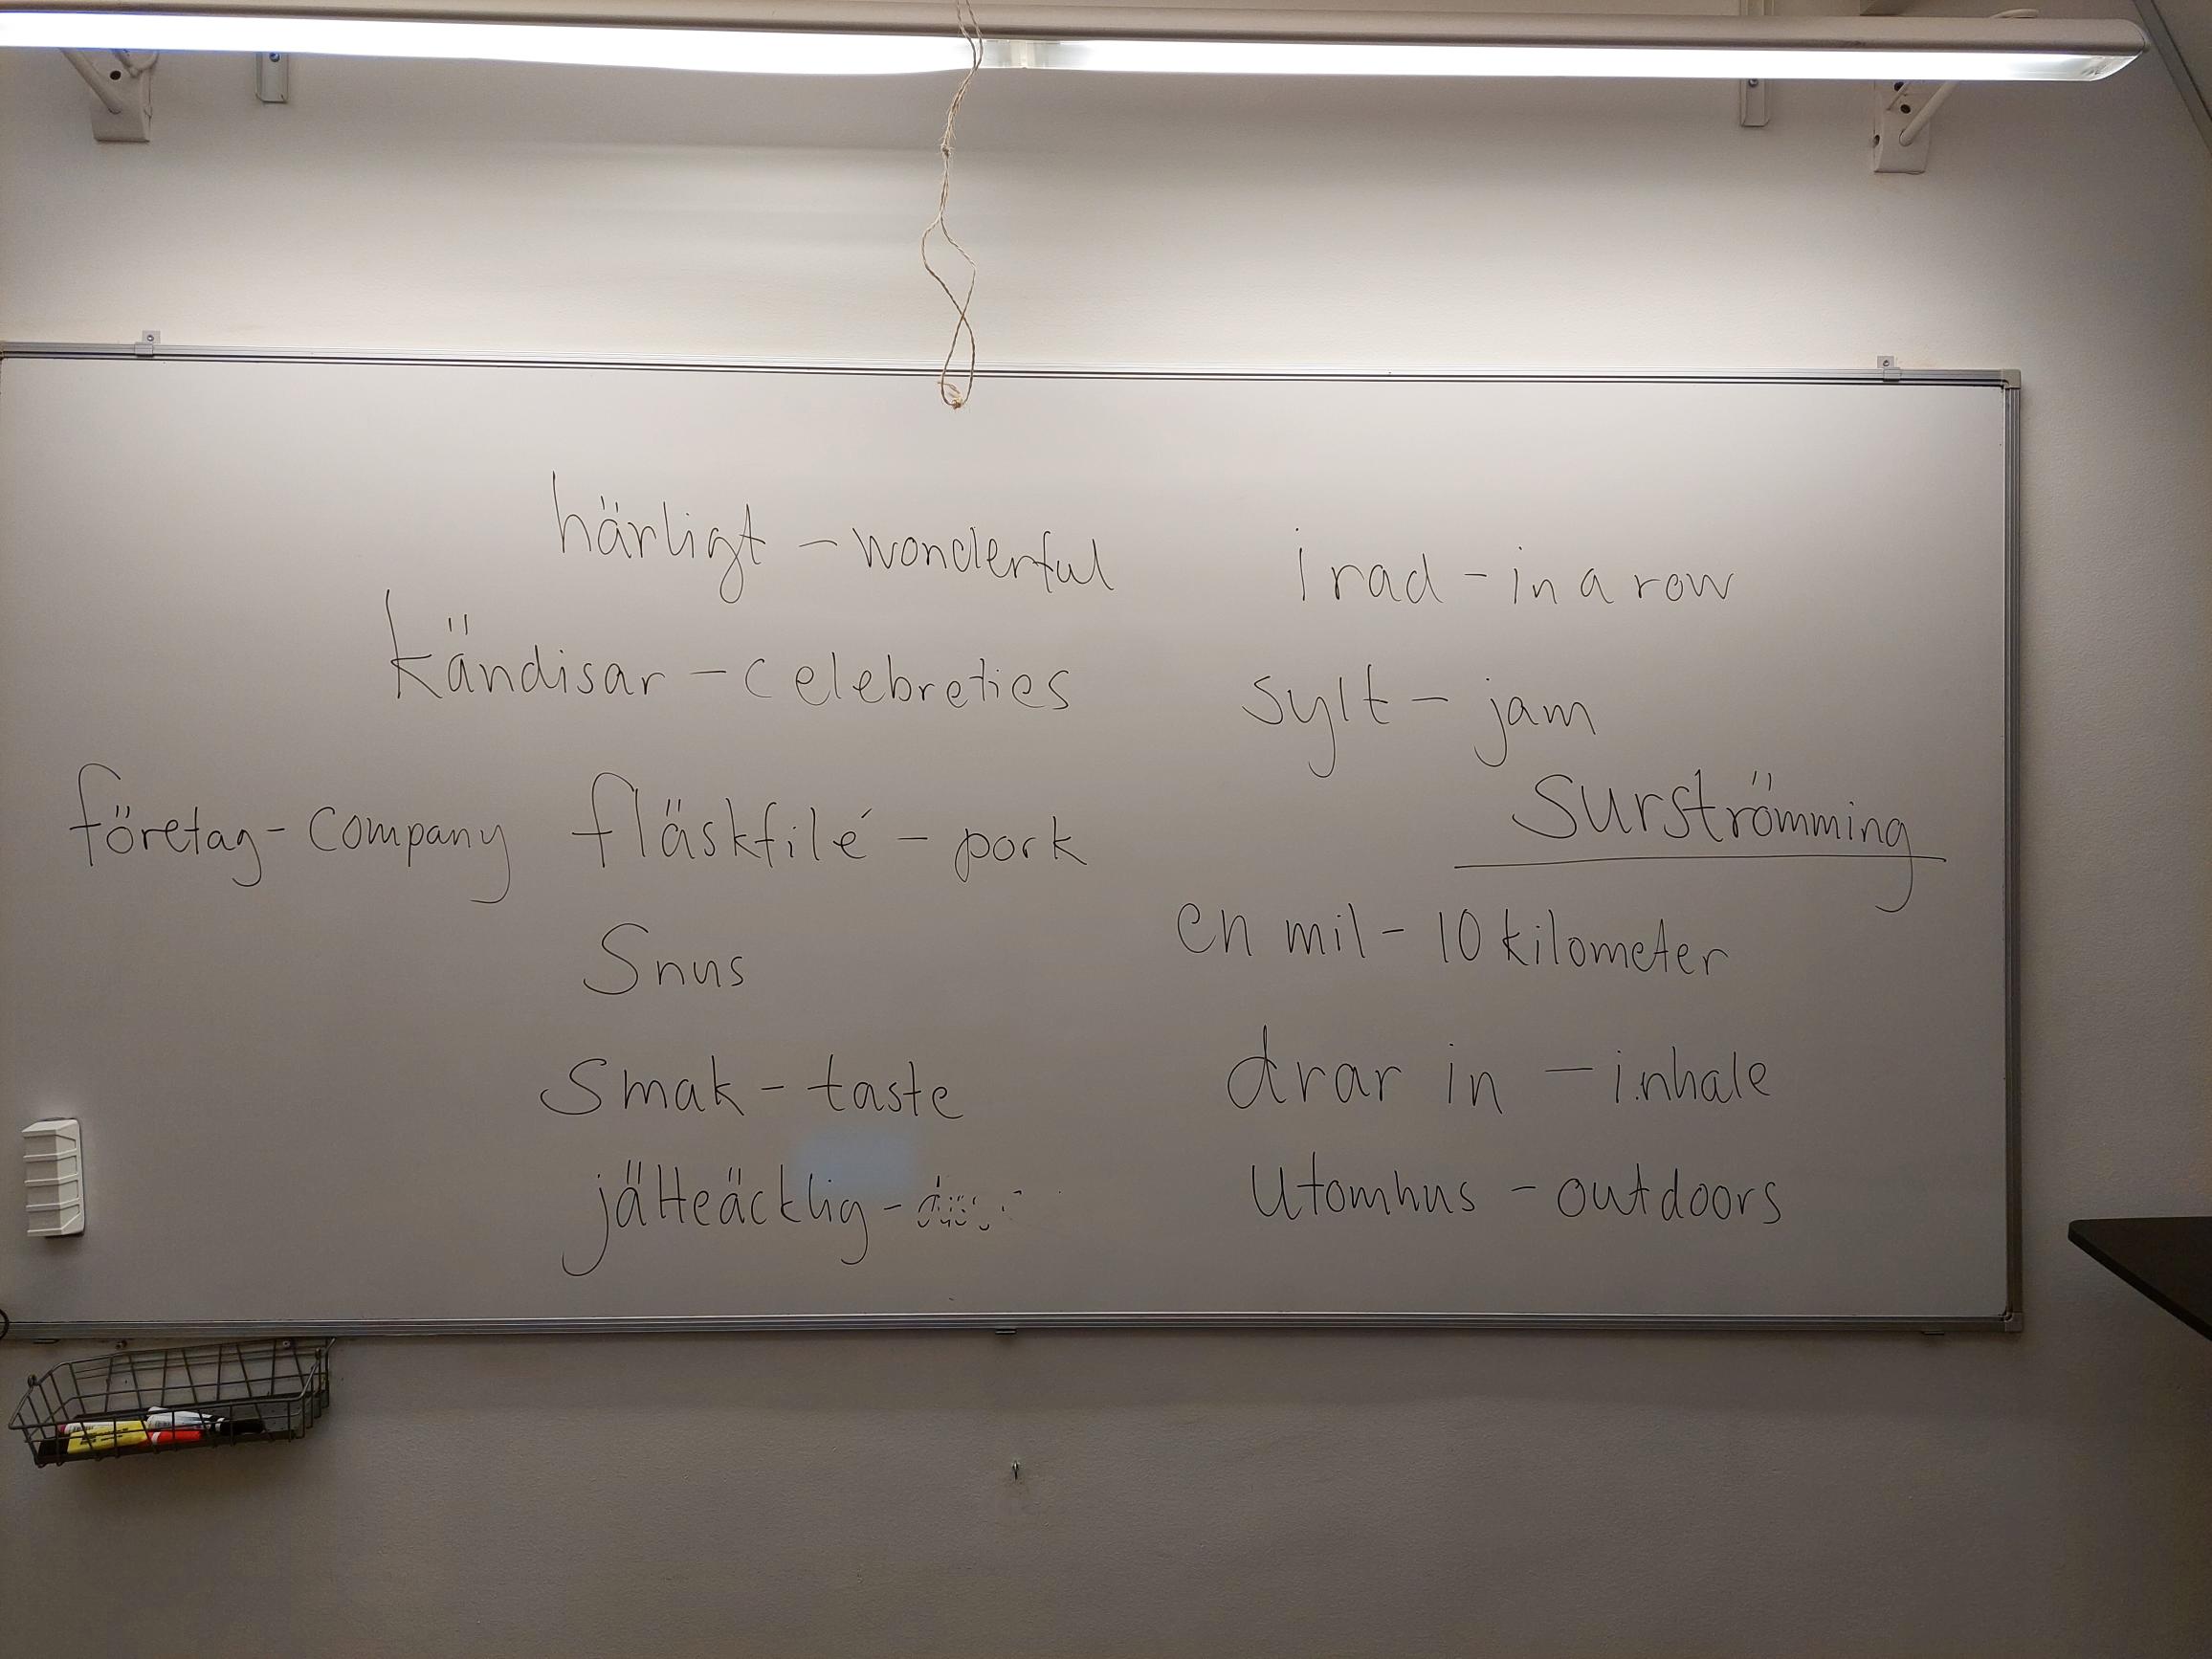 härligt - wonderful
i rad - in a row
kändisar - celebreties
sylt - jam
företag - company
fläskfilé - pork
Surströmming
Snus
en mil - 10 kilometer
Smak - taste
drar in - inhale
jätteäcklig -
Utomhus - outdoors